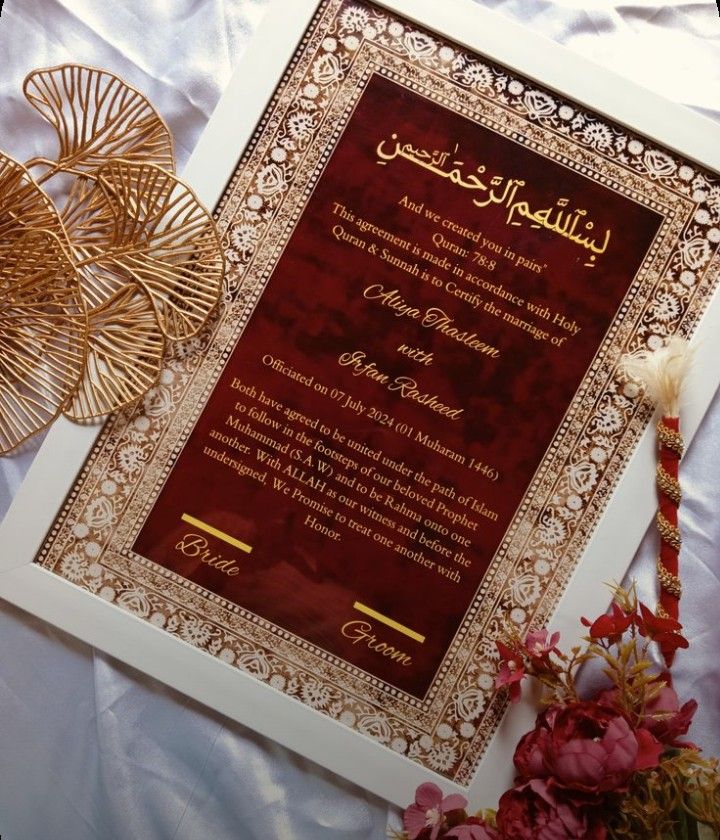 بِسْمِ ٱللَّٰهِ ٱلرَّحْمَٰنِ ٱلرَّحِيمِ
And we created you in pairs"
Quran: 78:8
This agreement is made in accordance with Holy
Quran & Sunnah is to Certify the marriage of
Aliya Thasleem
with
Irfan Rasheed
Officiated on 07 July 2024 (01 Muharam 1446)
Both have agreed to be united under the path of Islam
to follow in the footsteps of our beloved Prophet
Muhammad (S.A.W) and to be Rahma onto one
another. With ALLAH as our witness and before the
undersigned. We Promise to treat one another with
Honor.
Bride
Groom